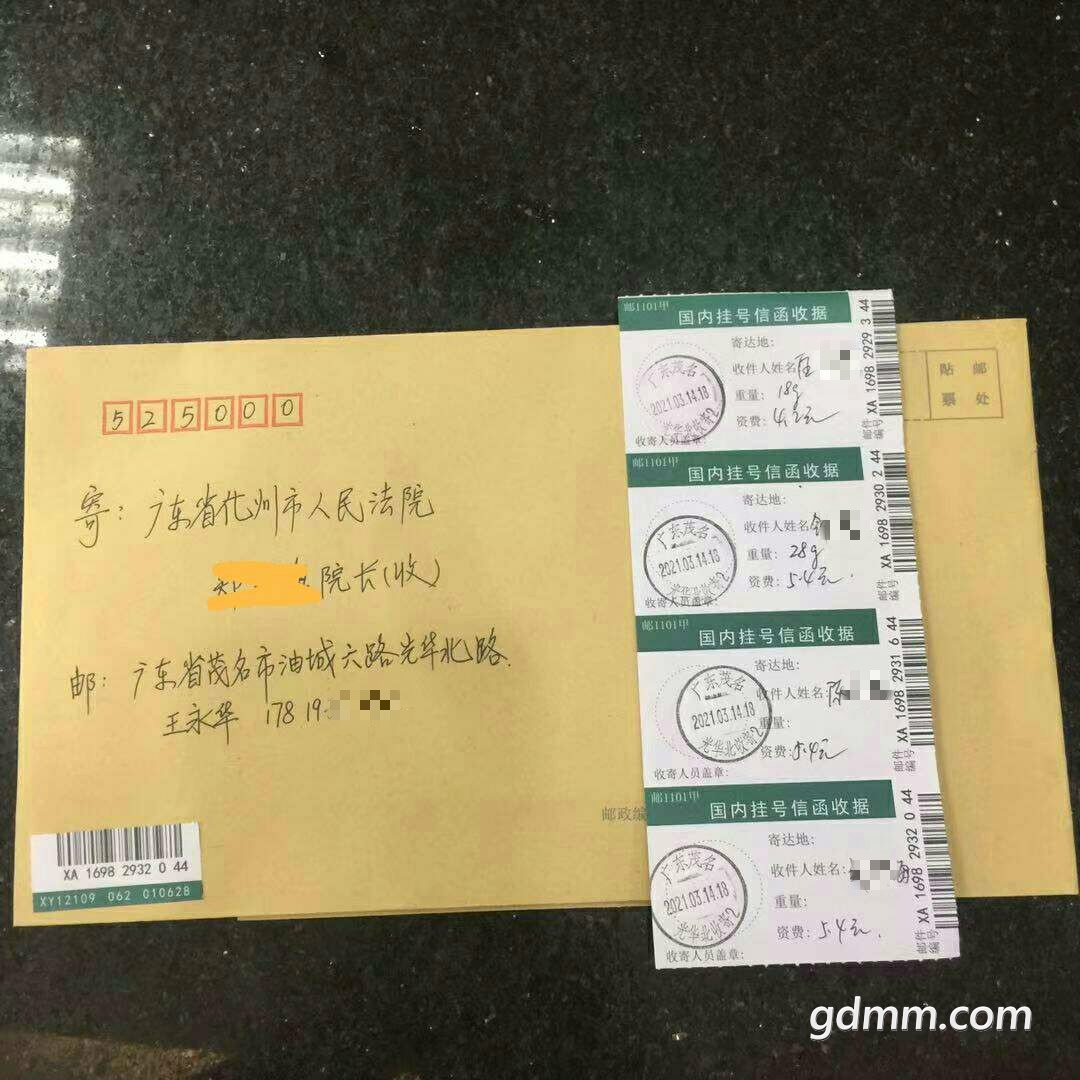 525000
寄：广东省化州市人民法院
院长(收)
邮：广东省茂名市油城六路光华北路.
王永华 178 19
XA 1698 2932 0 44
XY12109 062 010628
邮政编
贴 邮
票 处
邮1101甲
国内挂号信函收据
寄达地：
收件人姓名：
重量：18g
资费：4.2元
收寄人员盖章：
广东茂名
2021.03.14.18
光华北收寄2
邮件编号 XA 1698 2929 3 44
邮1101甲
国内挂号信函收据
寄达地：
收件人姓名：
重量：28g
资费：5.4元.
收寄人员盖章：
广东茂名
2021.03.14.18
光华北收寄2
邮件编号 XA 1698 2930 2 44
邮1101甲
国内挂号信函收据
寄达地：
收件人姓名：陈
重量：
资费：5.4元
收寄人员盖章：
广东茂名
2021.03.14.18
光华北收寄2
邮件编号 XA 1698 2931 6 44
邮1101甲
国内挂号信函收据
寄达地：
收件人姓名：
重量：
资费：5.4元.
收寄人员盖章：
广东茂名
2021.03.14.18
光华北收寄2
邮件编号 XA 1698 2932 0 44
gdmm.com